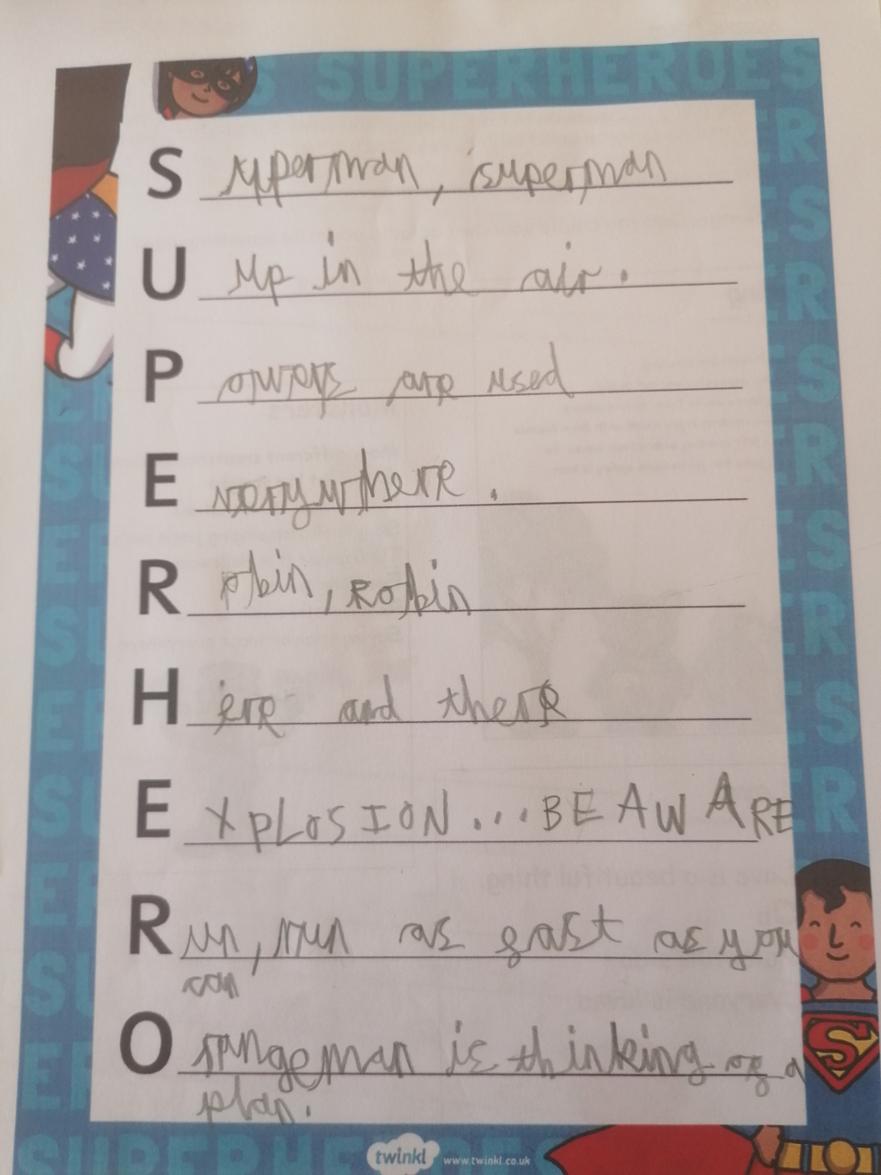 SUPERHEROES
Superman, superman
Up in the air.
Powers are used
Everywhere.
Robin, Robin
Here and there
EXPLOSION...BEAWARE
Run, run as fast as you
can
Orangeman is thinking of a
plan.
twinkl www.twinkl.co.uk